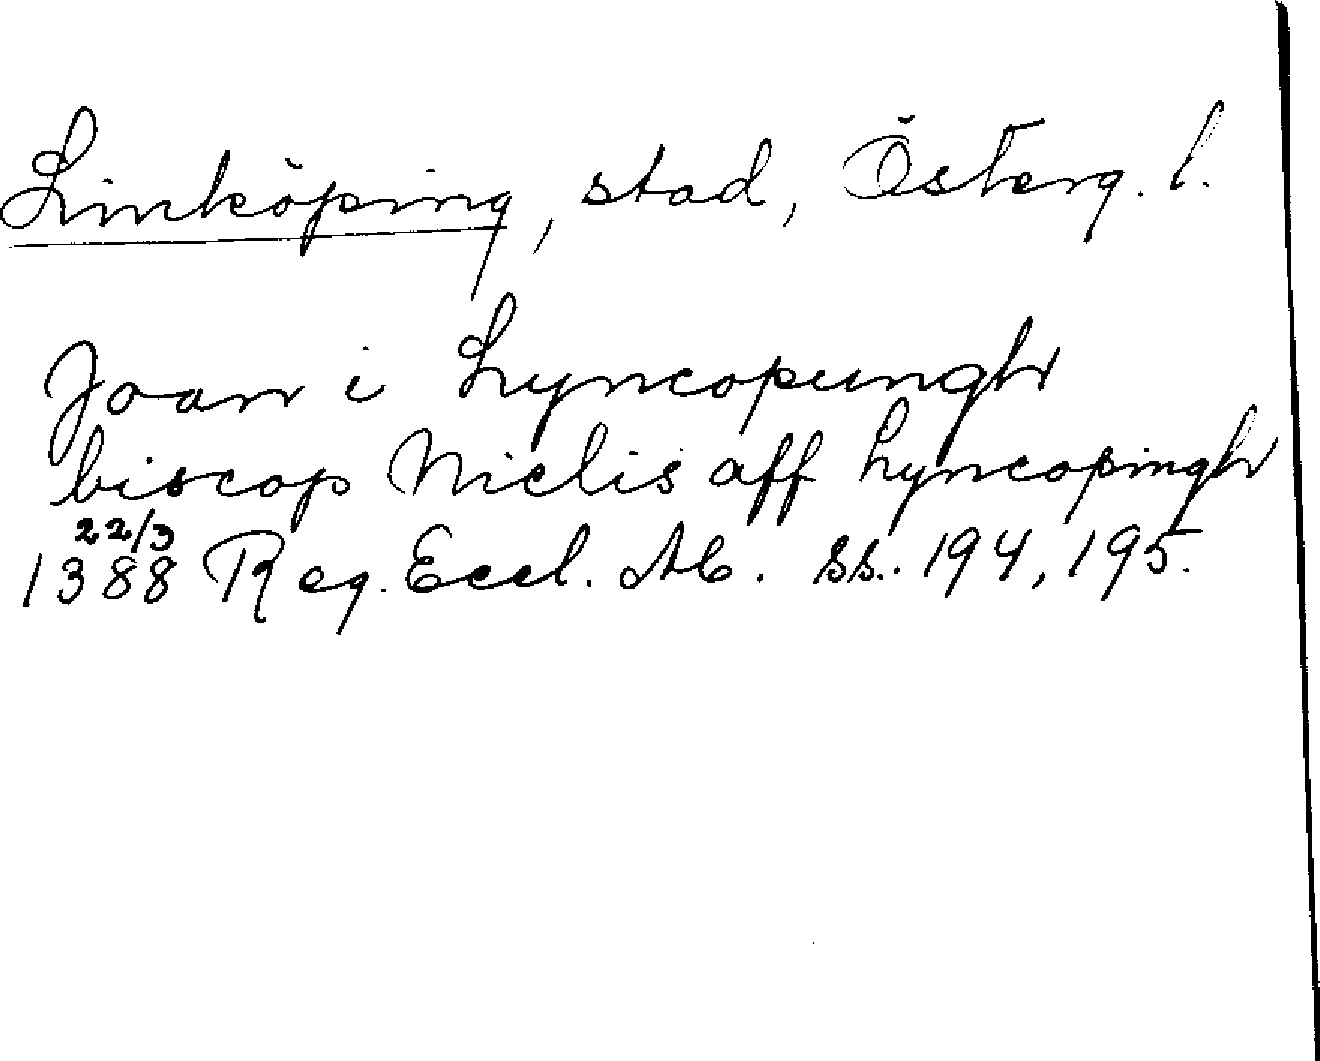 Linköping, stad, Österg. l.
Joan i Lyncopungh
biscop Niclis aff Lyncopingh
22/3
1388 Reg. Eccl. Ab. ss. 194, 195.